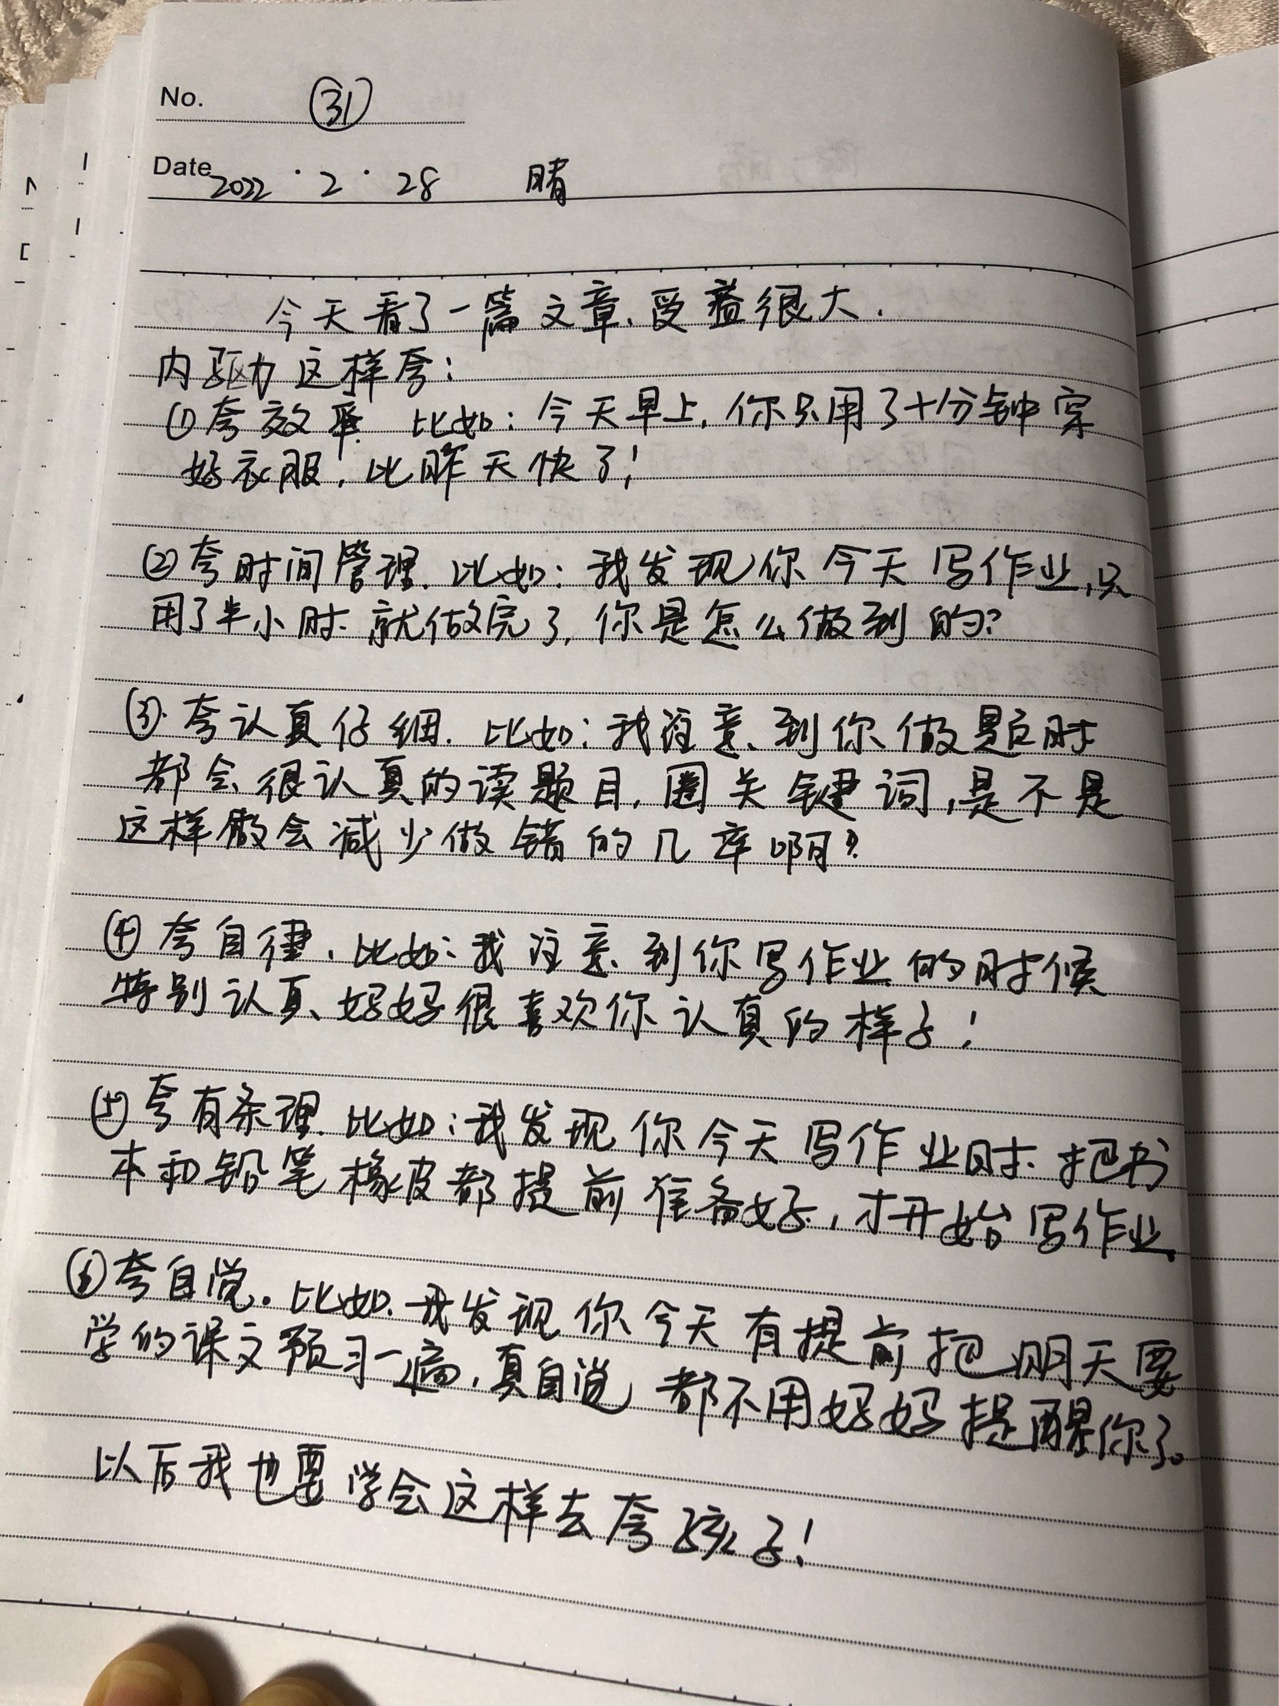 No. ㉛
Date 2022·2·28 晴
今天看了一篇文章、受益很大.
内驱力这样夸:
①夸效率 比如:今天早上,你只用了十分钟穿
好衣服!比昨天快了!
②夸时间管理. 比如:我发现你今天写作业,只
用了半小时就做完了,你是怎么做到的?
③夸认真仔细. 比如:我注意到你做题时
都会很认真的读题目,圈关键词,是不是
这样做会减少做错的几率啊?
④夸自律.比如:我注意到你写作业的时候
特别认真、妈妈很喜欢你认真的样子!
⑤夸有条理.比如:我发现你今天写作业时.把书
本和铅笔橡皮都提前准备好,才开始写作业。
⑥夸自觉。比如.我发现你今天有提前把明天要
学的课文预习一遍,真自觉,都不用妈妈提醒你了。
以后我也要学会这样去夸孩子!